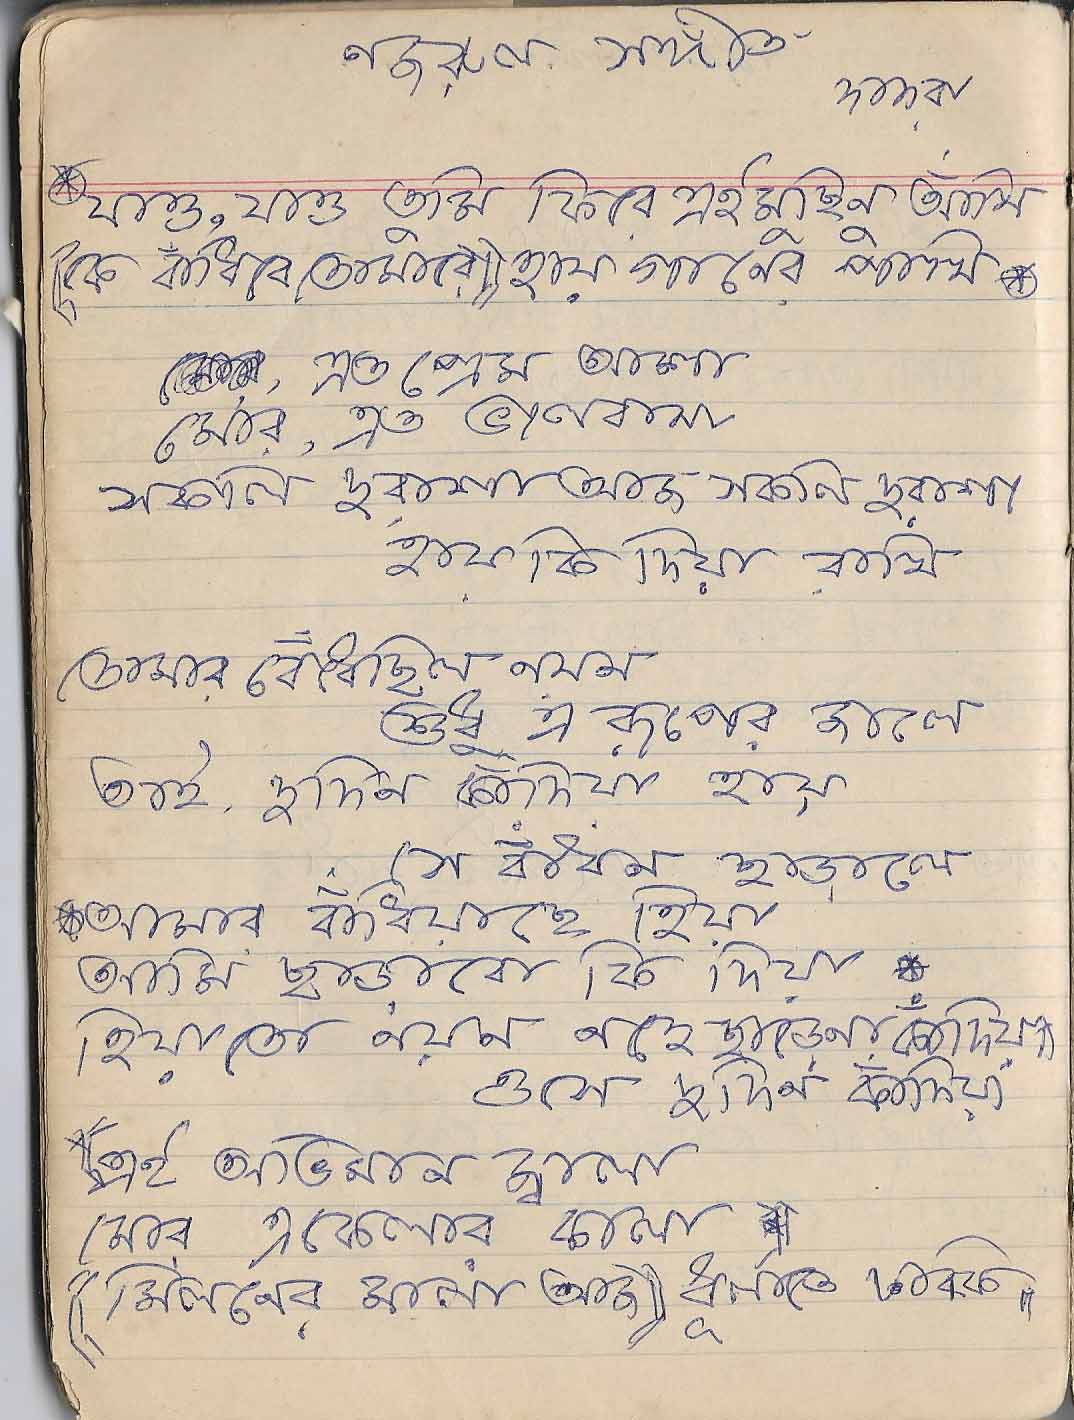 নজরুল সঙ্গীত
দাদরা
যাও, যাও তুমি ফিরে এই মুছিনু আঁখি
((কে বাঁধিবে তোমারে)) হায় গানের পাখি
এত প্রেম আশা
মোর, এত ভালবাসা
সকলি দুরাশা আজ সকলি দুরাশা
হায় কি দিয়া রাখি
তোমার বেঁধেছিল নয়ন
শুধু এ রূপের জালে
তাই, দুদিন কাঁদিয়া হায়
সে বাঁধন ছাড়ালে
আমার বাঁধিয়াছে হিয়া
আমি ছাড়াবো কি দিয়া
হিয়া তো নয়ন নহে ছাড়েনা কাঁদিয়া
ওসে দুদিন কাঁদিয়া
এই অভিমান জ্বালা
মোর একেলার কালা
((মিলনের মালা আজ)) ধূলাতে ঢাকি॥